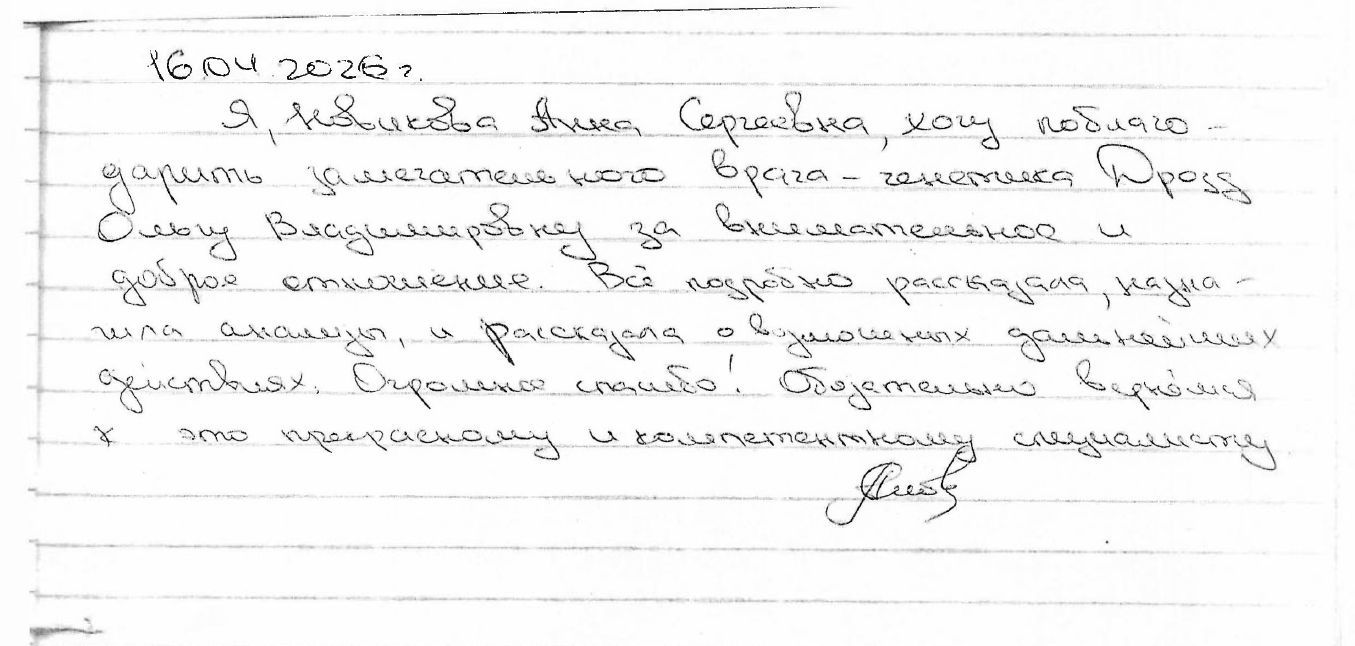 16.04.2026 г.
Я, Новикова Анна Сергеевна, хочу поблаго-
дарить замечательного врача-генетика Дрозд
Ольгу Владимировну за внимательное и
доброе отношение. Всё подробно рассказала, назна-
чила анализы, и рассказала о возможных дальнейших
действиях. Огромное спасибо! Обязательно вернёмся
к это прекрасному и компетентному специалисту